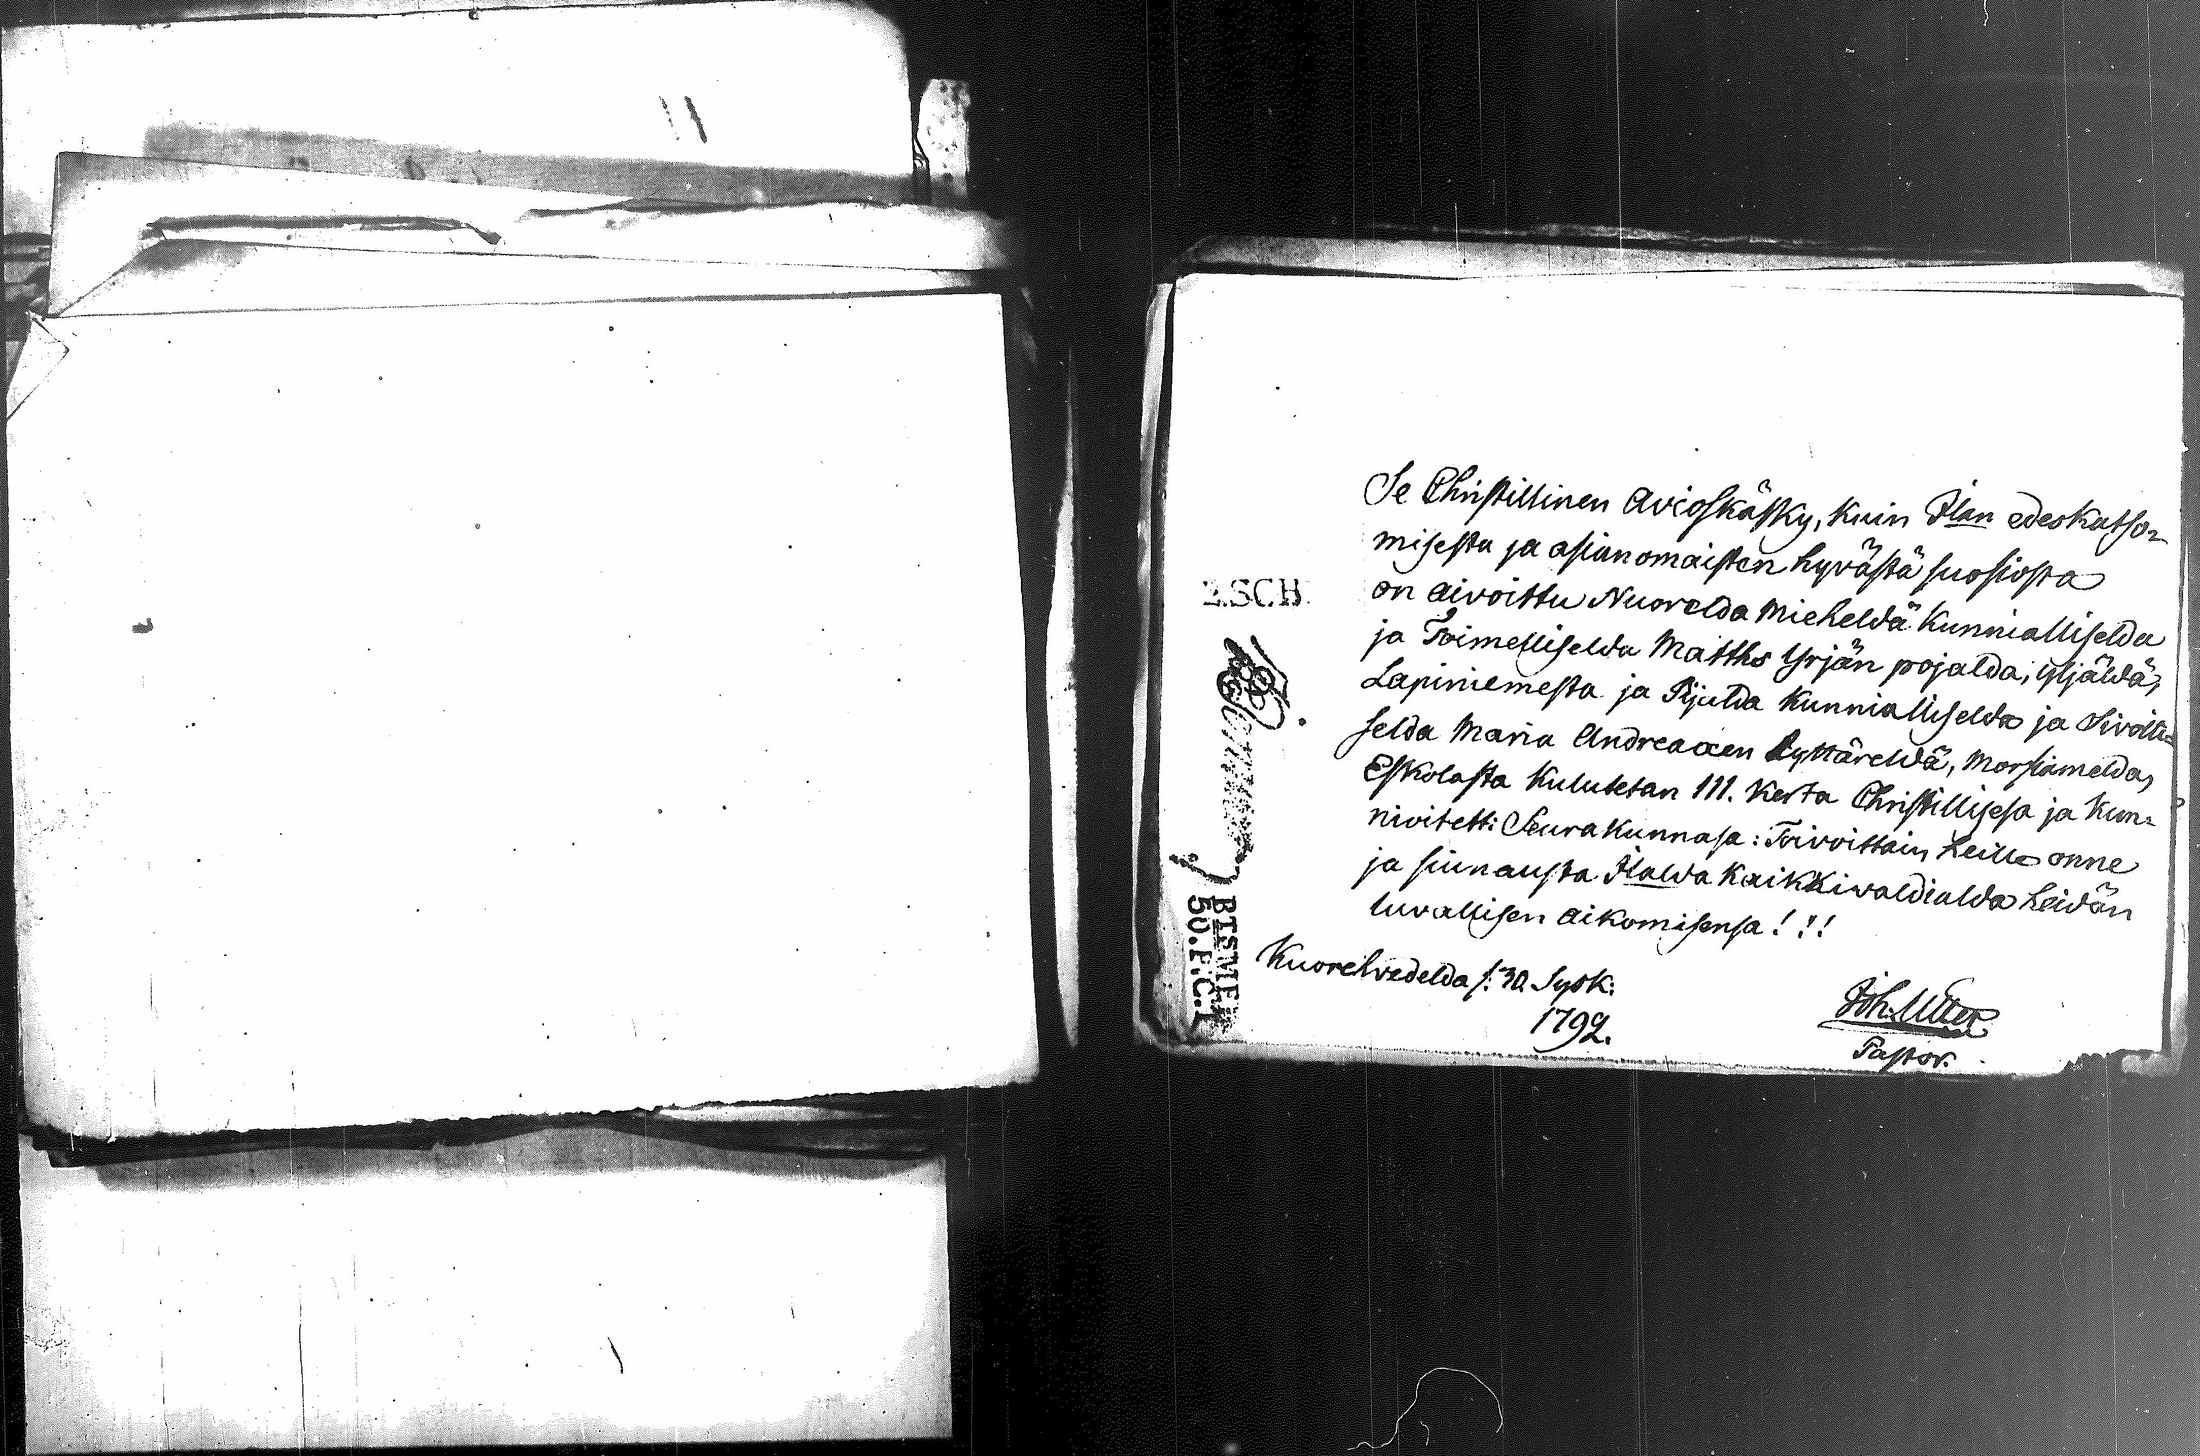 Se Christillinen Avioskäsky, kuin Ilan edeskatso=
misesta ja asianomaisten hyvästä suosiosta
on aivoittu Nuorelda Mieheldä kunnialliselda
ja Toimelliselda Matths Yrjän pojalda, yljäldä,
Lapiniemesta ja Pijalda kunnialliselda ja Sivolli=
selda Maria Andreaxen tyttäreldä, Morsiamelda,
Eskolasta kulutetan 111. kerta Christillisesa ja kun=
nivitetti Seurakunnasa: Toivoittain heille onne
ja siunausta Ilalda kaikkivaldialda heidän
luvallisen aikomisensa!!!
Kuorehvedelda f: 30. Sysk:
1792.
Joh.
Pastor.
E.SCH.
BTSME
50.F.C.